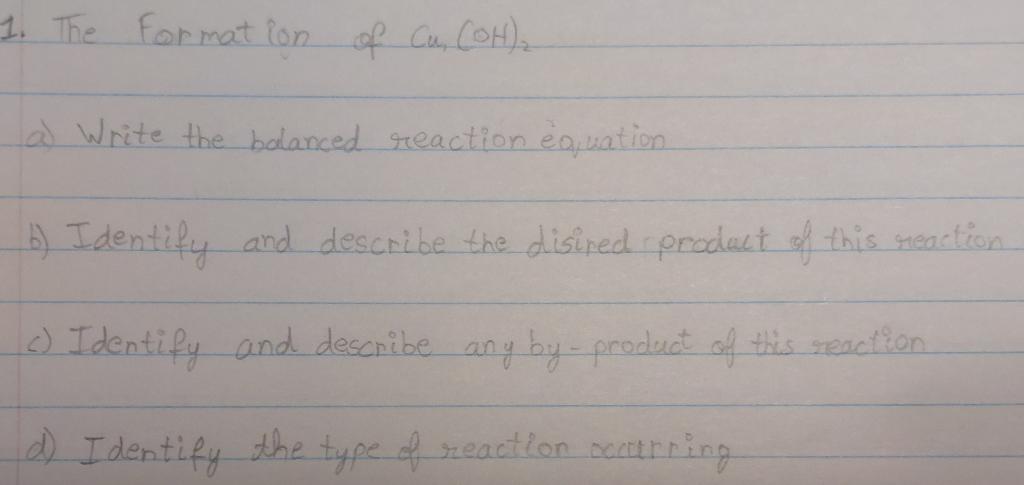 1. The Formation of Cu(OH)₂
a) Write the balanced reaction equation
b) Identify and describe the disired product of this reaction
c) Identify and describe any by-product of this reaction
d) Identify the type of reaction occurring